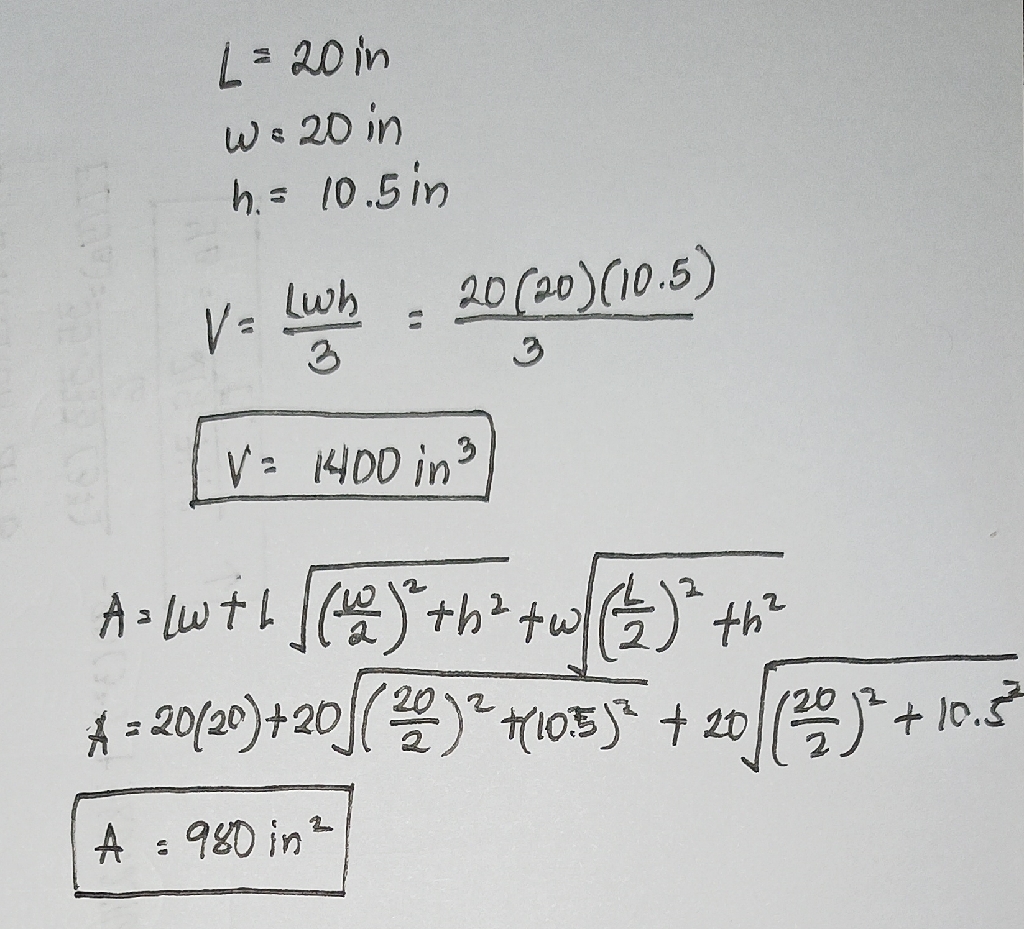 L = 20 in
w = 20 in
h. = 10.5 in
V = Lwh/3 = 20(20)(10.5)/3
V = 1400 in³
A = Lw + L √((w/2)² + h²) + w √((L/2)² + h²)
A = 20(20) + 20 √((20/2)² + (10.5)²) + 20 √((20/2)² + 10.5²)
A = 980 in²